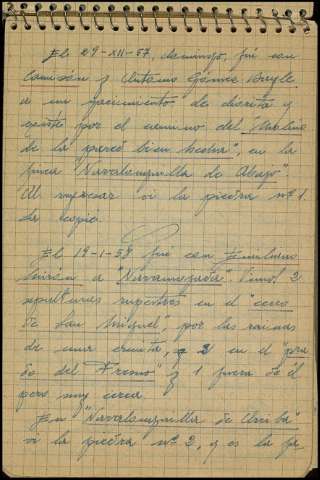 El 29-XII-57, domingo, fui con
Comisón y Antonio Gómez
a un yacimiento de diorita y
por el camino del "Molino
de la pared bien hecha", en la
finca "Navalonguilla de Abajo".
Al regresar vi la piedra nº 1.
La copié.
El 19-1-58 fui con
a "Navamorzada". Vimos 2
sepulturas rupestres en el "cerro
de San Miguel", por las ruinas
de una ermita, 2 en el "pra
do del Fresno" y 1 fuera de él
pero muy cerca.
En "Navalonguilla de Arriba"
vi la piedra nº 2, y es la pa